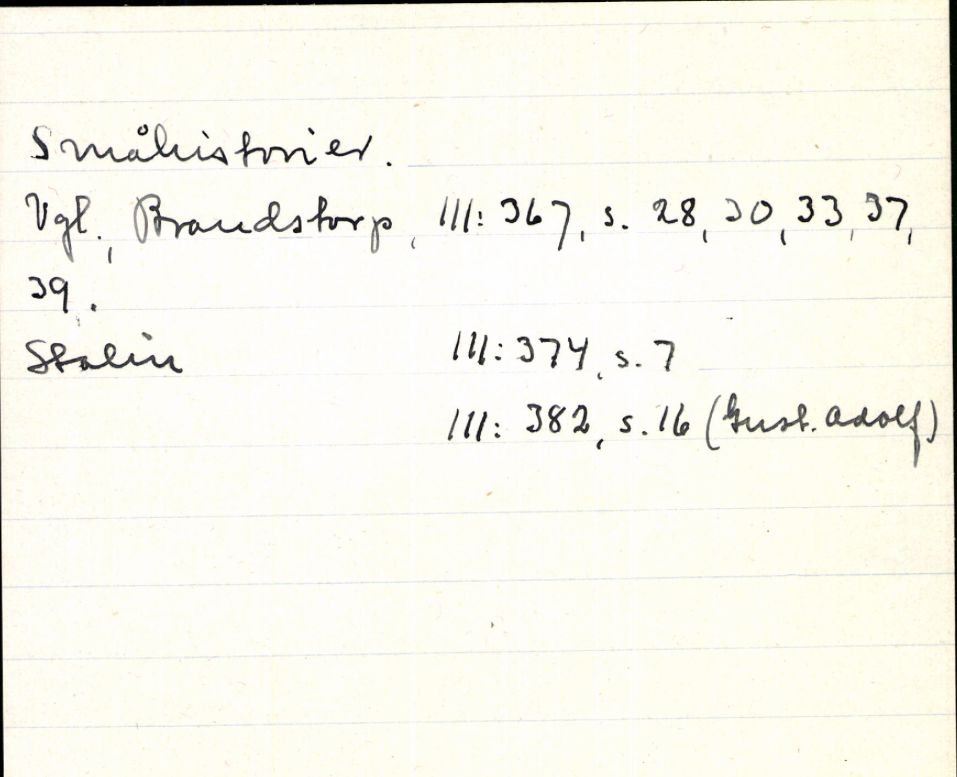 Småhistorier.
Vgl., Brandstorp, III: 367, s. 28, 30, 33, 37,
39.
Stalin III: 374, s. 7
III: 382, s. 16 (Gust. Adolf)